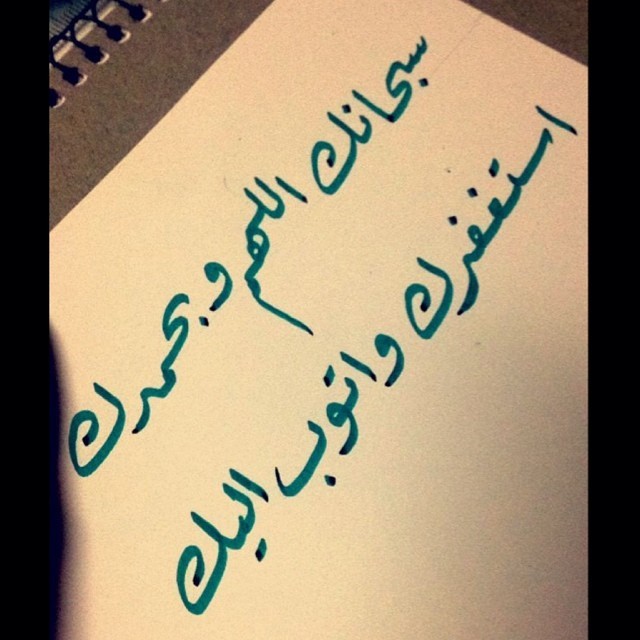 سبحانك اللهم وبحمدك
استغفرك واتوب اليك